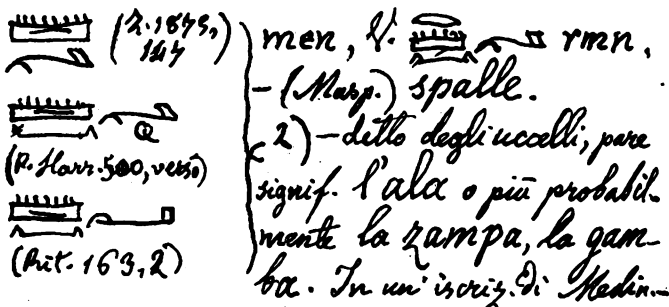 𓏠𓂝 (Z. 1875, 147)
𓏠𓈖𓂝
(P. Harr. 500, verso)
𓏠𓈖𓂝
(Rit. 163, 2)
men, V. 𓂋𓏠𓈖𓂝 rmn.
– (Masp.) spalle.
2) – ditto degli uccelli, pare
signif. l'ala o più probabil-
mente la zampa, la gam-
ba. In un' iscriz. di Medin.-